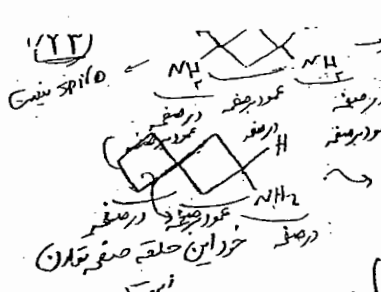 ۱/۲۳
NH₂ NH₂
spiro نیست ←
در صفحه عمود بر صفحه در صفحه
عمود بر صفحه در صفحه عمود بر صفحه
H
NH₂
در صفحه عمود بر صفحه در صفحه
خود این حلقه صفحه تقارن